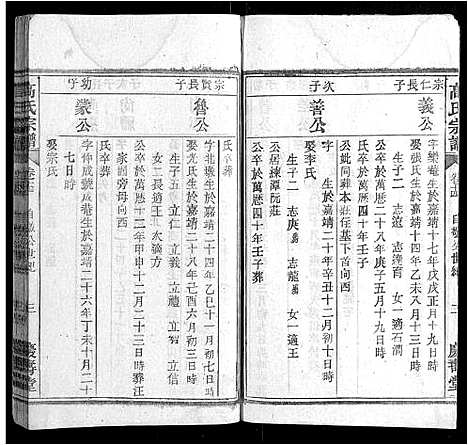 高氏宗譜
宗仁長子
義公
字樂菴生於嘉靖十七年戊戌正月十九日時
娶張氏生於嘉靖十四年乙未八月十三日時
生子二 志遠 志達 女一適石澗
公卒於萬曆二十八年庚子五月初九日時
公妣同葬本莊任基下首向酉
次子
善公
生於嘉靖二十年辛丑十二月初十日時
娶李氏
生子二 志庚 志龍 女一適王
公居練潭阮莊
公卒於萬曆四十年壬子葬
氏卒葬
宗賢長子
魯公
字北墩生於嘉靖二十四年乙巳十一月初七日時
娶尤氏生於嘉靖二十八年己酉六月初三日時
生子五 立仁 立義 立禮 立信
女二長適王次適方
公卒於萬曆十二年甲申十二月二十三日時葬王
家園旁母向西
幼子
蒙公
字仲成號成菴生於嘉靖二十六年丁未十月二十
七日時
娶宗氏
高氏宗譜
三
慶壽堂